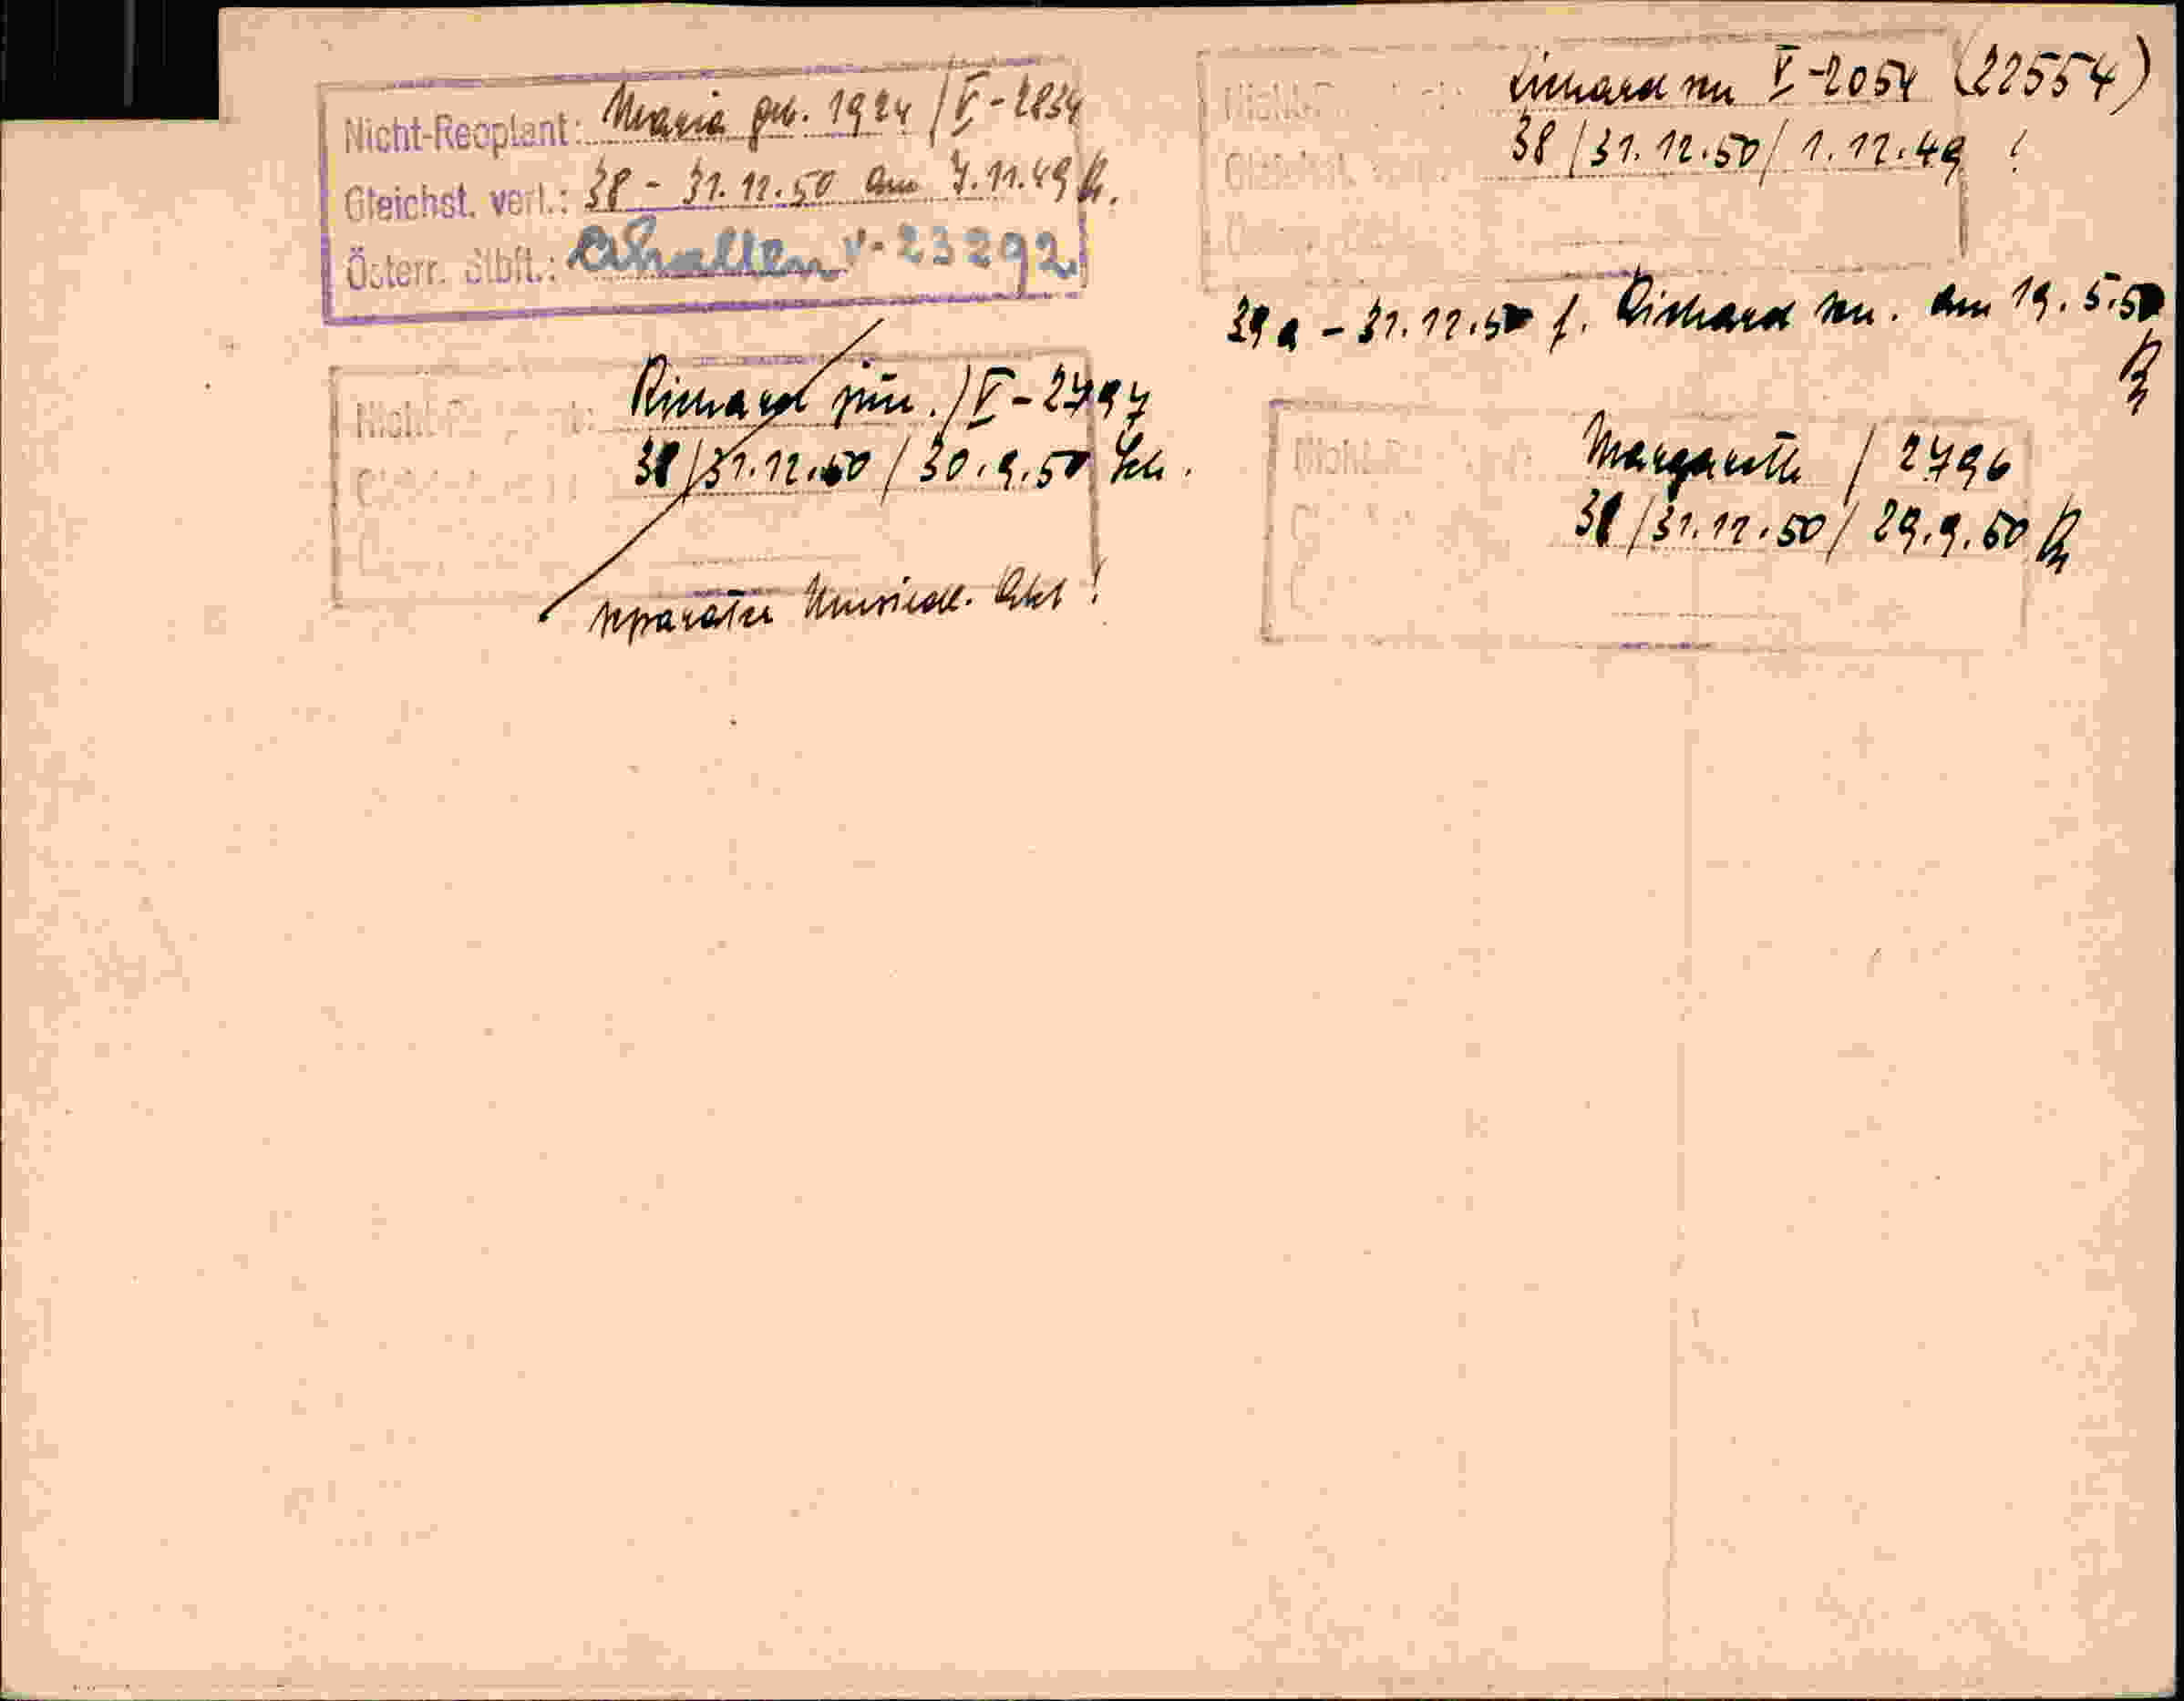 Nicht-Reoptant: Maria geb. 1924 / V-2834
Gleichst. verl.: 38 - 31.12.50 am 7.11.49
Österr. Stbft.: erhalten V-23292
Richard sen V-2054 (22554)
38 / 31.12.50 / 1.12.49 !
39a - 31.12.50 f. Richard sen. am 19.5.50
Richard jun. / V-2797
38 / 31.12.50 / 30.9.50
separater Umsiedl. Akt!
Nicht
Margareth / 2796
38 / 31.12.50 / 29.9.50